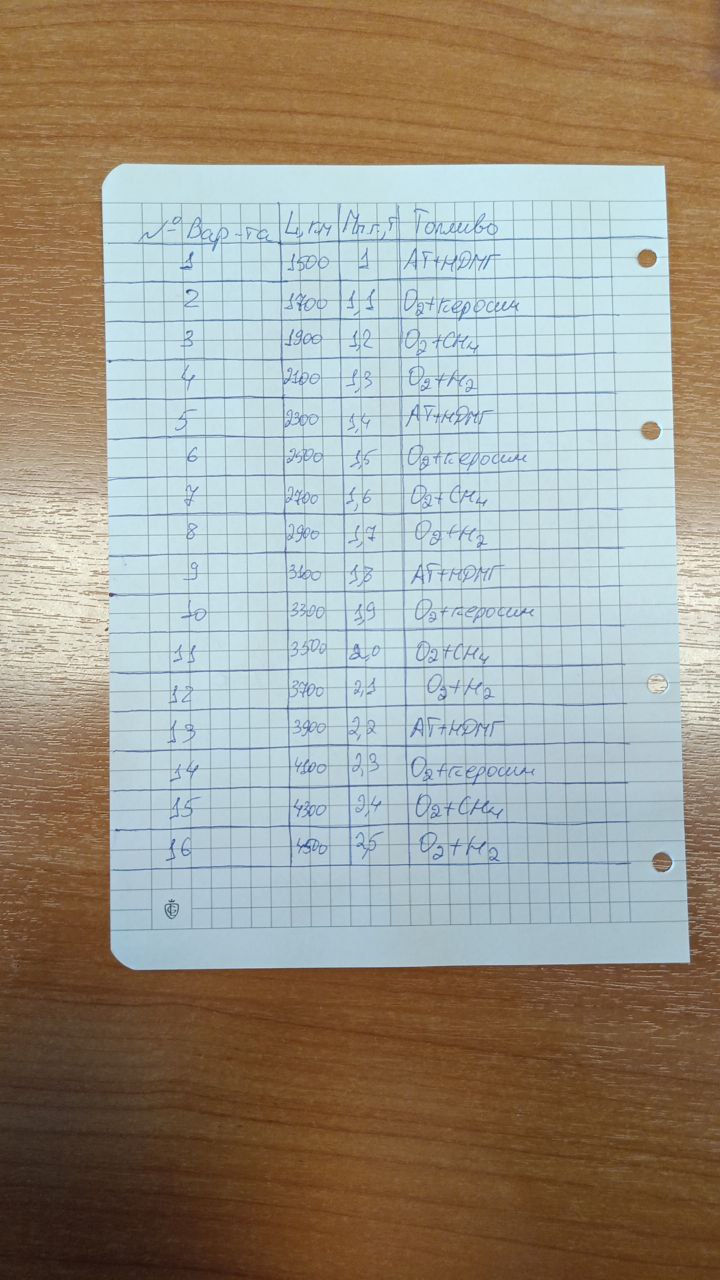 № Вар-та L, км Mп.г, т Топливо
1 1500 1 АТ+НДМГ
2 1700 1,1 O₂+керосин
3 1900 1,2 O₂+CH₄
4 2100 1,3 O₂+H₂
5 2300 1,4 АТ+НДМГ
6 2500 1,5 O₂+керосин
7 2700 1,6 O₂+CH₄
8 2900 1,7 O₂+H₂
9 3100 1,8 АТ+НДМГ
10 3300 1,9 O₂+керосин
11 3500 2,0 O₂+CH₄
12 3700 2,1 O₂+H₂
13 3900 2,2 АТ+НДМГ
14 4100 2,3 O₂+керосин
15 4300 2,4 O₂+CH₄
16 4500 2,5 O₂+H₂